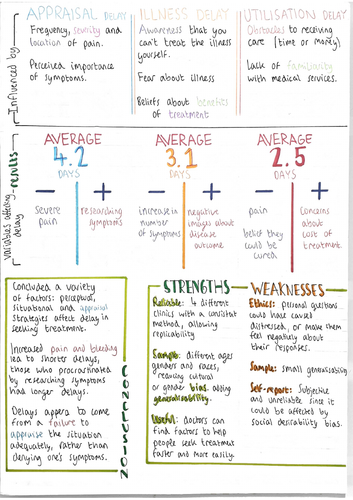 APPRAISAL DELAY
Frequency, severity and
location of pain.
Perceived importance
of symptoms.
ILLNESS DELAY
Awareness that you
can't treat the illness
yourself.
Fear about illness
Beliefs about benefits
of treatment
UTILISATION DELAY
Obstacles to receiving
care (time or money)
Lack of familiarity
with medical services.
Influenced by
Variables affecting
delay
RESULTS
AVERAGE
4.2
DAYS
−
+
Severe
pain
researching
symptoms
AVERAGE
3.1
DAYS
−
+
increase in
number
of symptoms
negative
images about
disease
outcome
AVERAGE
2.5
DAYS
−
+
pain
belief they
could be
cured
Concerns
about
cost of
treatment.
Concluded a variety
of factors: perceptual,
situational and appraisal
strategies affect delay in
seeking treatment.
Increased pain and bleeding
led to shorter delays,
those who procrastinated
by researching symptoms
had longer delays.
Delays appera to come
from a failure to
appraise the situation
adequately, rather than
denying one's symptoms.
CONCLUSION
STRENGTHS
Reliable: 4 different
clinics with a consistat
method, allowing
replicability
Sample: different ages
genders and races,
reducing cultural
or gender bias, adding
generalisability.
Useful: doctors can
find factors to help
people seek treatment
faster and more easily.
WEAKNESSES
Ethics: personal questions
could have caused
distressed, or make them
feel negatively about
their responses.
Sample: small generalisating
Self-report: Subjective
and unreliable since it
could be affected by
social desirability bias.